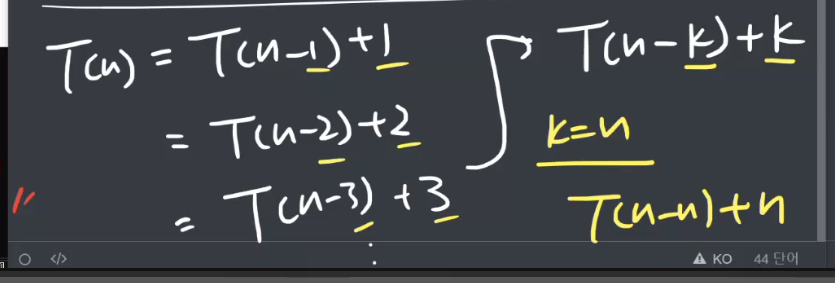 T(n) = T(n-1)+1
= T(n-2)+2
= T(n-3)+3
⋮
T(n-k)+k
k=n
T(n-n)+n
</> KO 44 단어